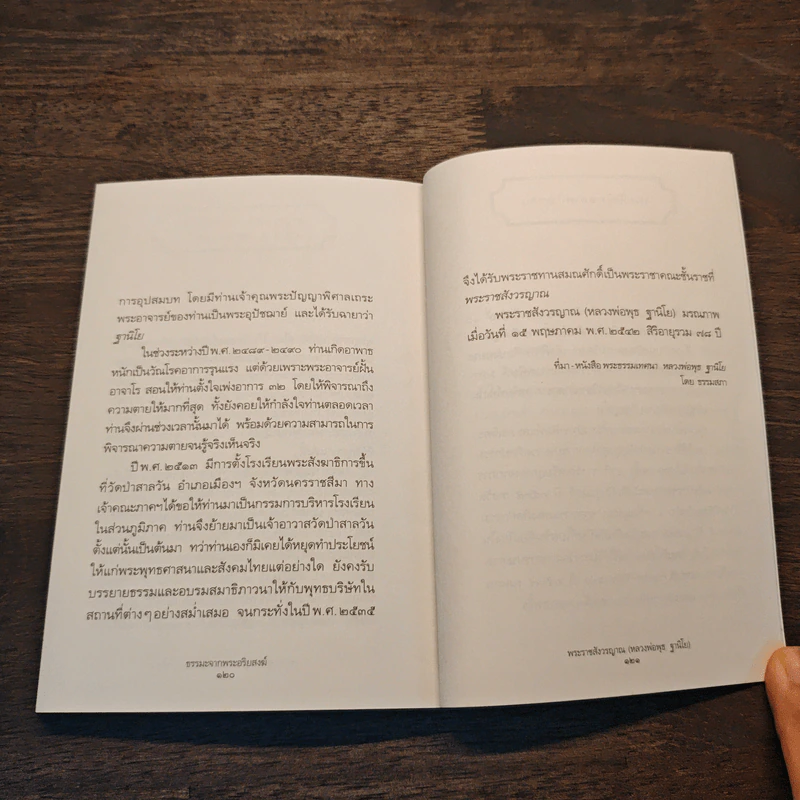 การอุปสมบท โดยมีท่านเจ้าคุณพระปัญญาพิศาลเถระ
พระอาจารย์ของท่านเป็นพระอุปัชฌาย์ และได้รับฉายาว่า
ฐานิโย
ในช่วงระหว่างปี พ.ศ. ๒๔๘๙ - ๒๔๙๐ ท่านเกิดอาพาธ
หนักเป็นวัณโรคอาการรุนแรง แต่ด้วยเพราะพระอาจารย์ฝั้น
อาจาโร สอนให้ท่านตั้งใจเพ่งอาการ ๓๒ โดยให้พิจารณาถึง
ความตายให้มากที่สุด ทั้งยังคอยให้กำลังใจท่านตลอดเวลา
ท่านจึงผ่านช่วงเวลานั้นมาได้ พร้อมด้วยความสามารถในการ
พิจารณาความตายจนรู้จริงเห็นจริง
ปี พ.ศ. ๒๕๑๓ มีการตั้งโรงเรียนพระสังฆาธิการขึ้น
ที่วัดป่าสาลวัน อำเภอเมืองฯ จังหวัดนครราชสีมา ทาง
เจ้าคณะภาคฯได้ขอให้ท่านมาเป็นกรรมการบริหารโรงเรียน
ในส่วนภูมิภาค ท่านจึงย้ายมาเป็นเจ้าอาวาสวัดป่าสาลวัน
ตั้งแต่นั้นเป็นต้นมา ทว่าท่านเองก็มิเคยได้หยุดทำประโยชน์
ให้แก่พระพุทธศาสนาและสังคมไทยแต่อย่างใด ยังคงรับ
บรรยายธรรมและอบรมสมาธิภาวนาให้กับพุทธบริษัทใน
สถานที่ต่างๆ อย่างสม่ำเสมอ จนกระทั่งในปี พ.ศ. ๒๕๓๕
ธรรมะจากพระอริยสงฆ์
๑๒๐
จึงได้รับพระราชทานสมณศักดิ์เป็นพระราชาคณะชั้นราชที่
พระราชสังวรญาณ
พระราชสังวรญาณ (หลวงพ่อพุธ ฐานิโย) มรณภาพ
เมื่อวันที่ ๑๕ พฤษภาคม พ.ศ. ๒๕๔๒ สิริอายุรวม ๗๘ ปี
ที่มา - หนังสือ พระธรรมเทศนา หลวงพ่อพุธ ฐานิโย
โดย ธรรมสภา
พระราชสังวรญาณ (หลวงพ่อพุธ ฐานิโย)
๑๒๑